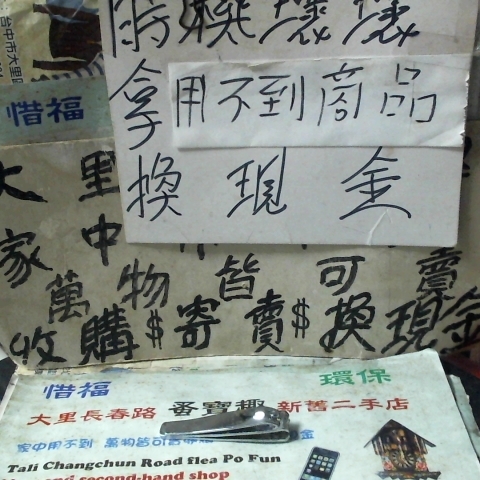 台中市大里
惜福
拿用不到商品
換現金
大里
家中
萬物皆可賣
收購$寄賣$換現金
惜福 環保
大里長春路 蚤寶趣 新舊二手店
家中用不到 萬物皆可 金
Tali Changchun Road flea Po Fun
second-hand shop